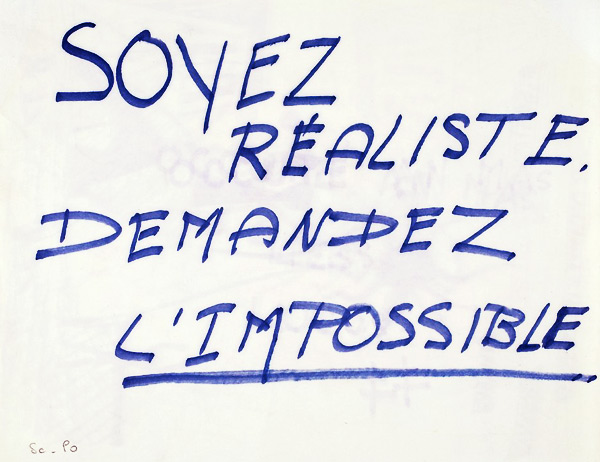 SOYEZ
RÉALISTE.
DEMANDEZ
L'IMPOSSIBLE
Sc-Po